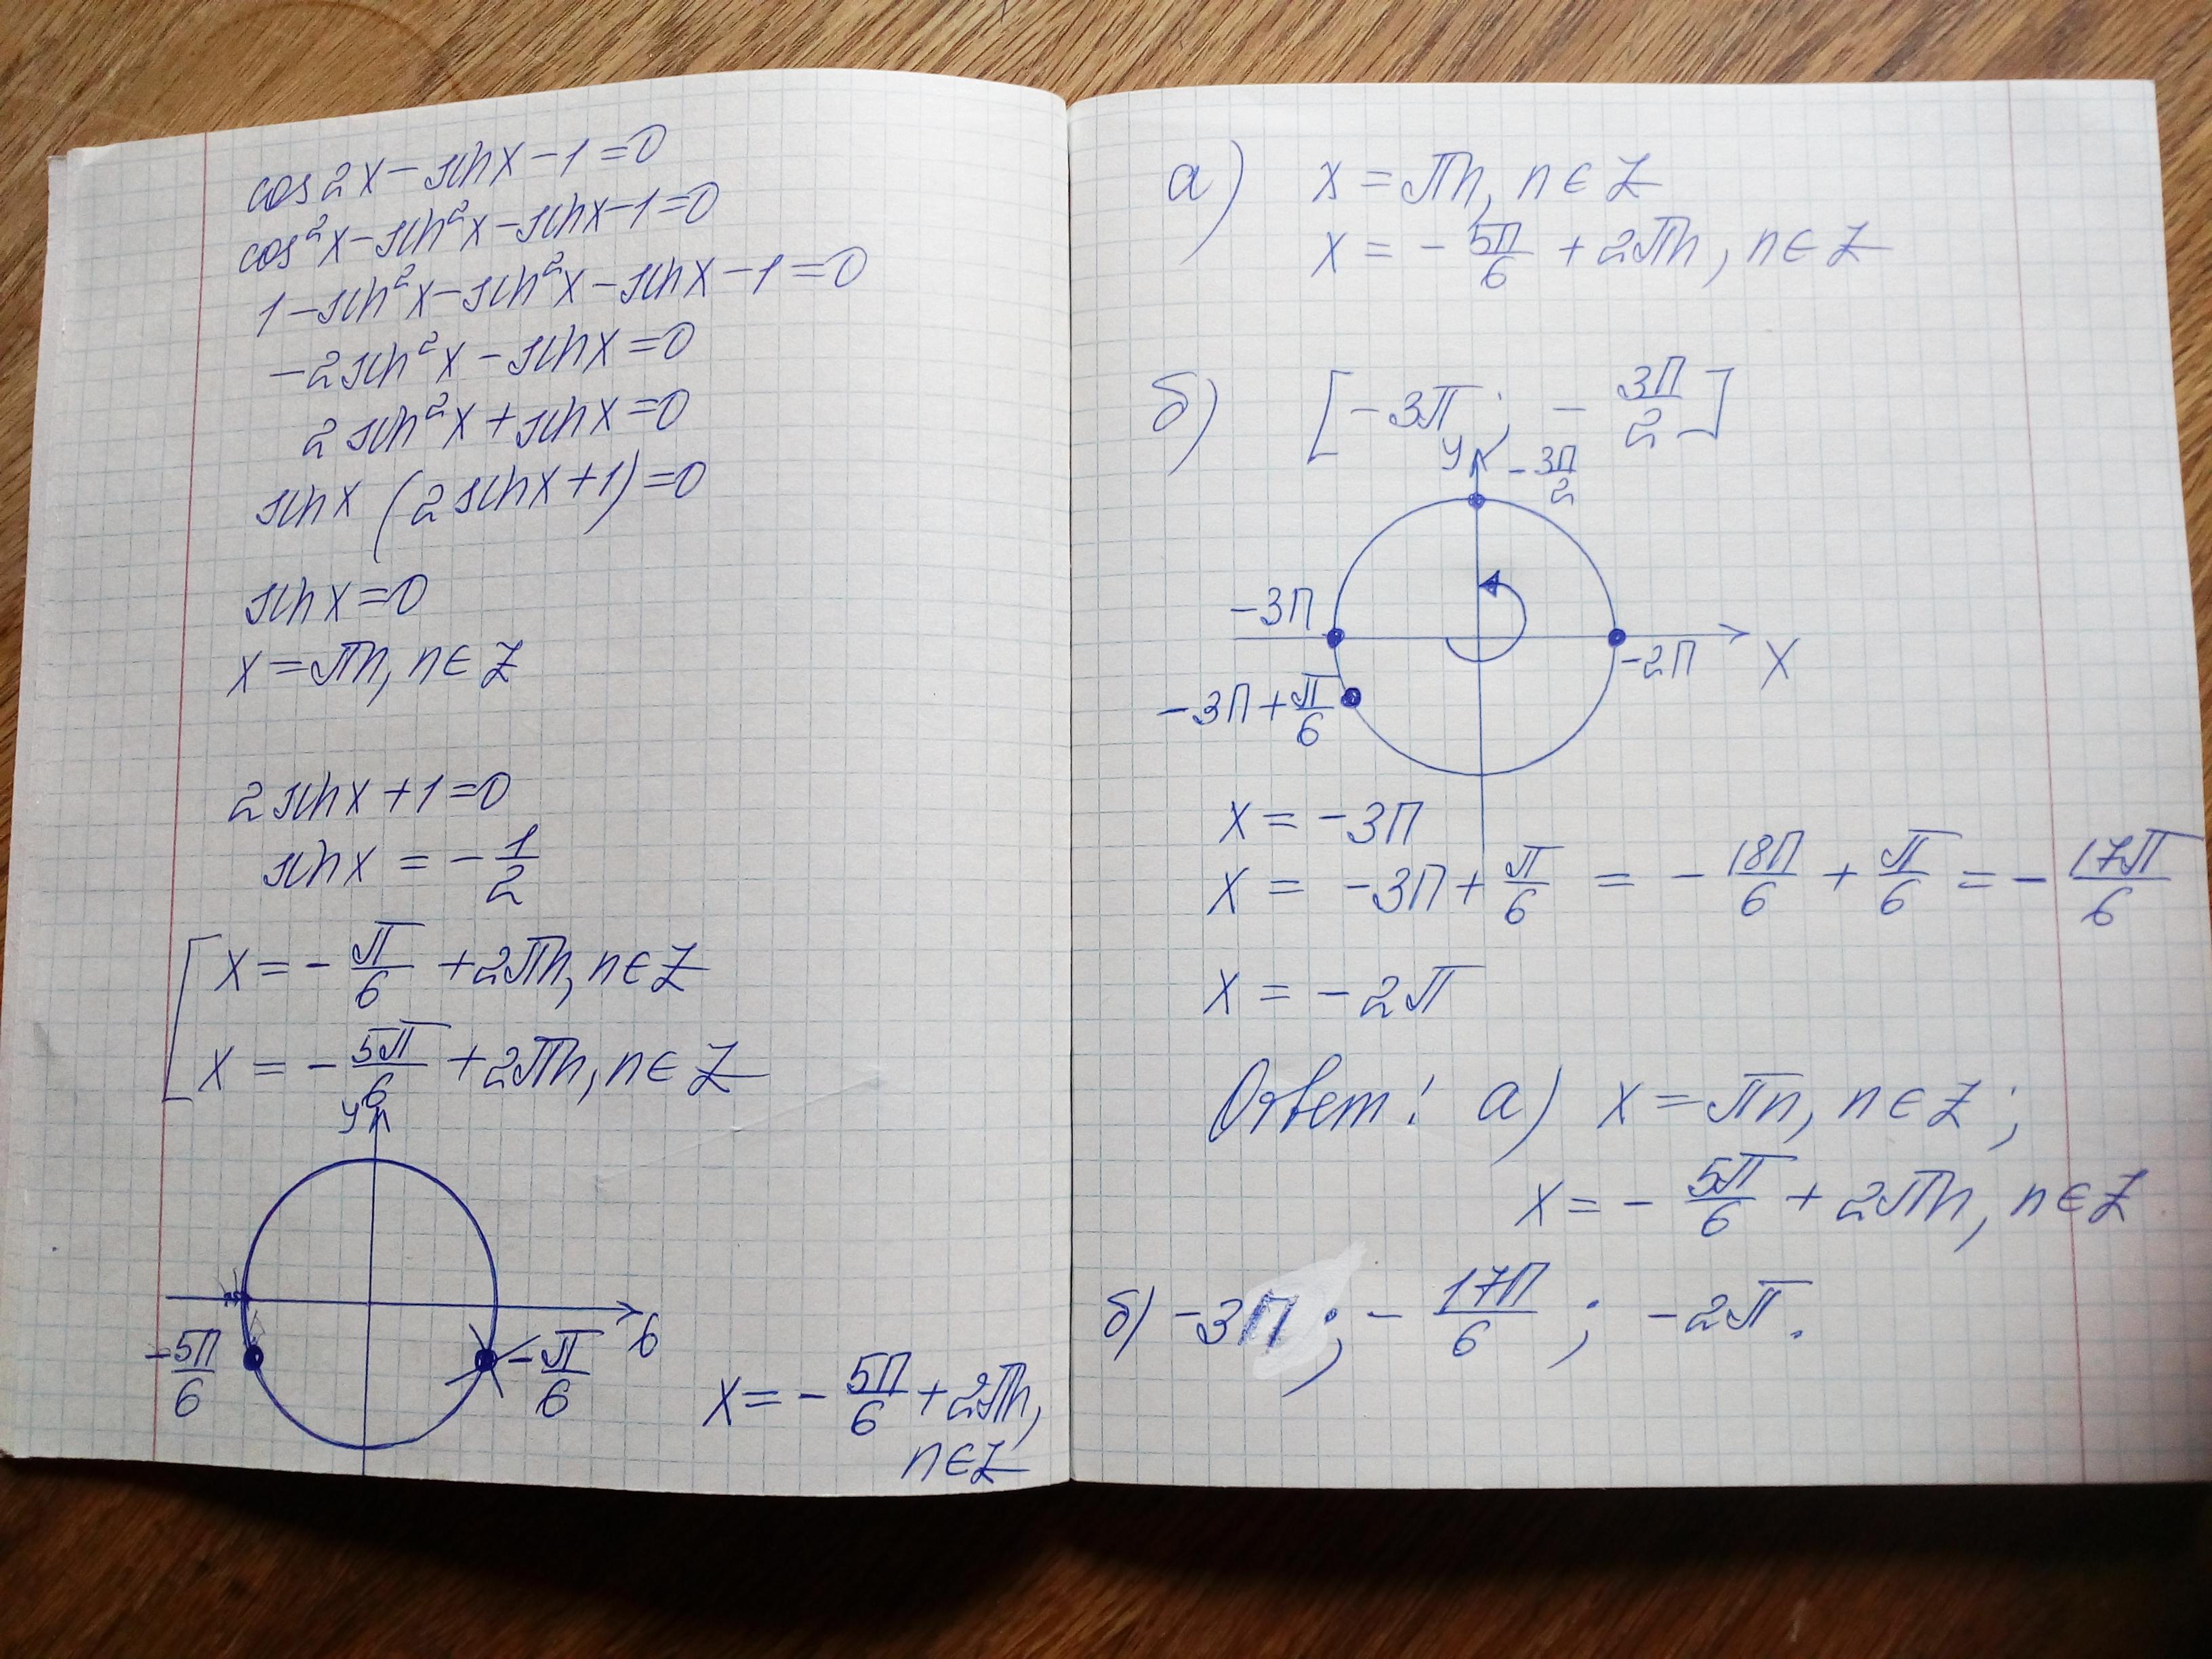 cos2x-sinx-1=0
cos²x-sin²x-sinx-1=0
1-sin²x-sin²x-sinx-1=0
-2sin²x-sinx=0
2sin²x+sinx=0
sinx (2sinx+1)=0
sinx=0
x=πn, n∈Z
2sinx+1=0
sinx = -1/2
x=-π/6 +2πn, n∈Z
x = -5π/6 +2πn, n∈Z
y
-5π/6
-π/6
x=-5π/6+2πn,
n∈Z
а) x=πn, n∈Z
x=-5π/6 + 2πn, n∈Z
б) [-3π; -3π/2]
y
-3π/2
-3π
-2π
x
-3π+π/6
x=-3π
x = -3π+π/6 = -18π/6 + π/6 = -17π/6
x = -2π
Ответ: а) x=πn, n∈Z;
x=-5π/6 + 2πn, n∈Z
б) -3π; -17π/6; -2π.